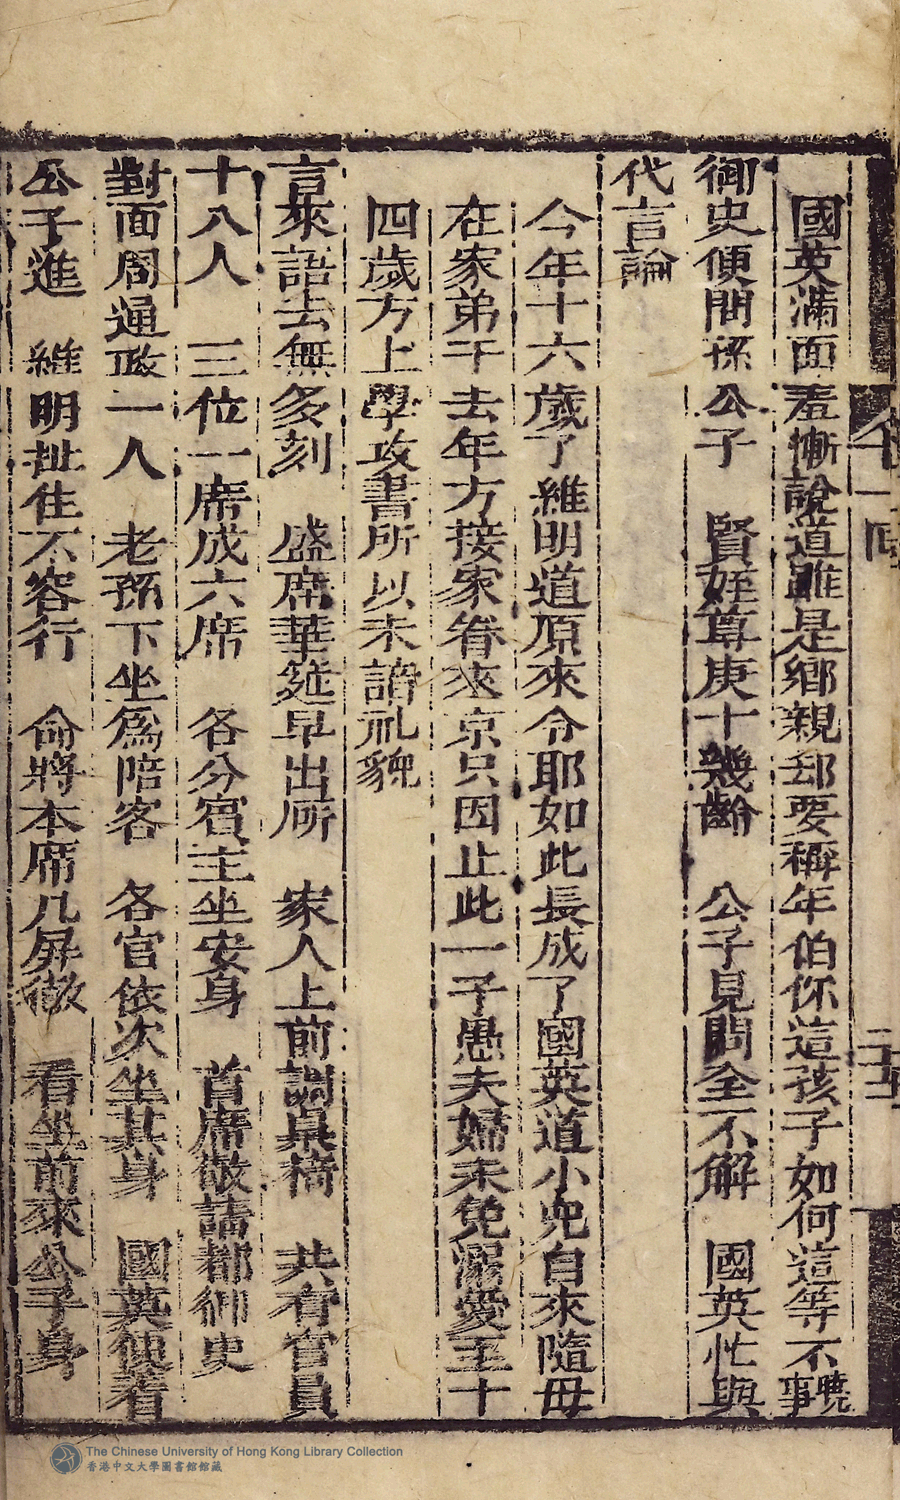 國英滿面羞慚說道雖是鄉親却要稱年伯你這孩子如何這等不曉事
御史便問孫公子　賢姪尊庚十幾齡　公子見問全不解　國英忙與
代言論
今年十六歲了維明道原來令耶如此長成了國英道小兒自來隨母
在家弟于去年方接家眷來京只因止此一子愚夫婦未免溺愛至十
四歲方上學攻書所以未諳礼貌
言來語去無多刻　盛席華筵早出所　家人上前調桌椅　共有官員
十八人　三位一席成六席　各分賓主坐安身　首席敬請都御史
對面周通政一人　老孫下坐爲陪客　各官依次坐其身　國英便着
公子進　維明扯住不容行　命將本席几屏徹　看坐前來公子身
一回
二十五
The Chinese University of Hong Kong Library Collection
香港中文大學圖書館館藏